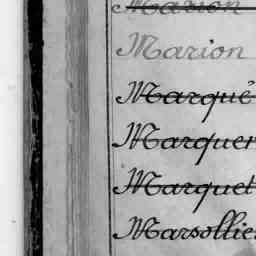 Marion
Marion
Marqué
Marquer
Marquet
Marsollie